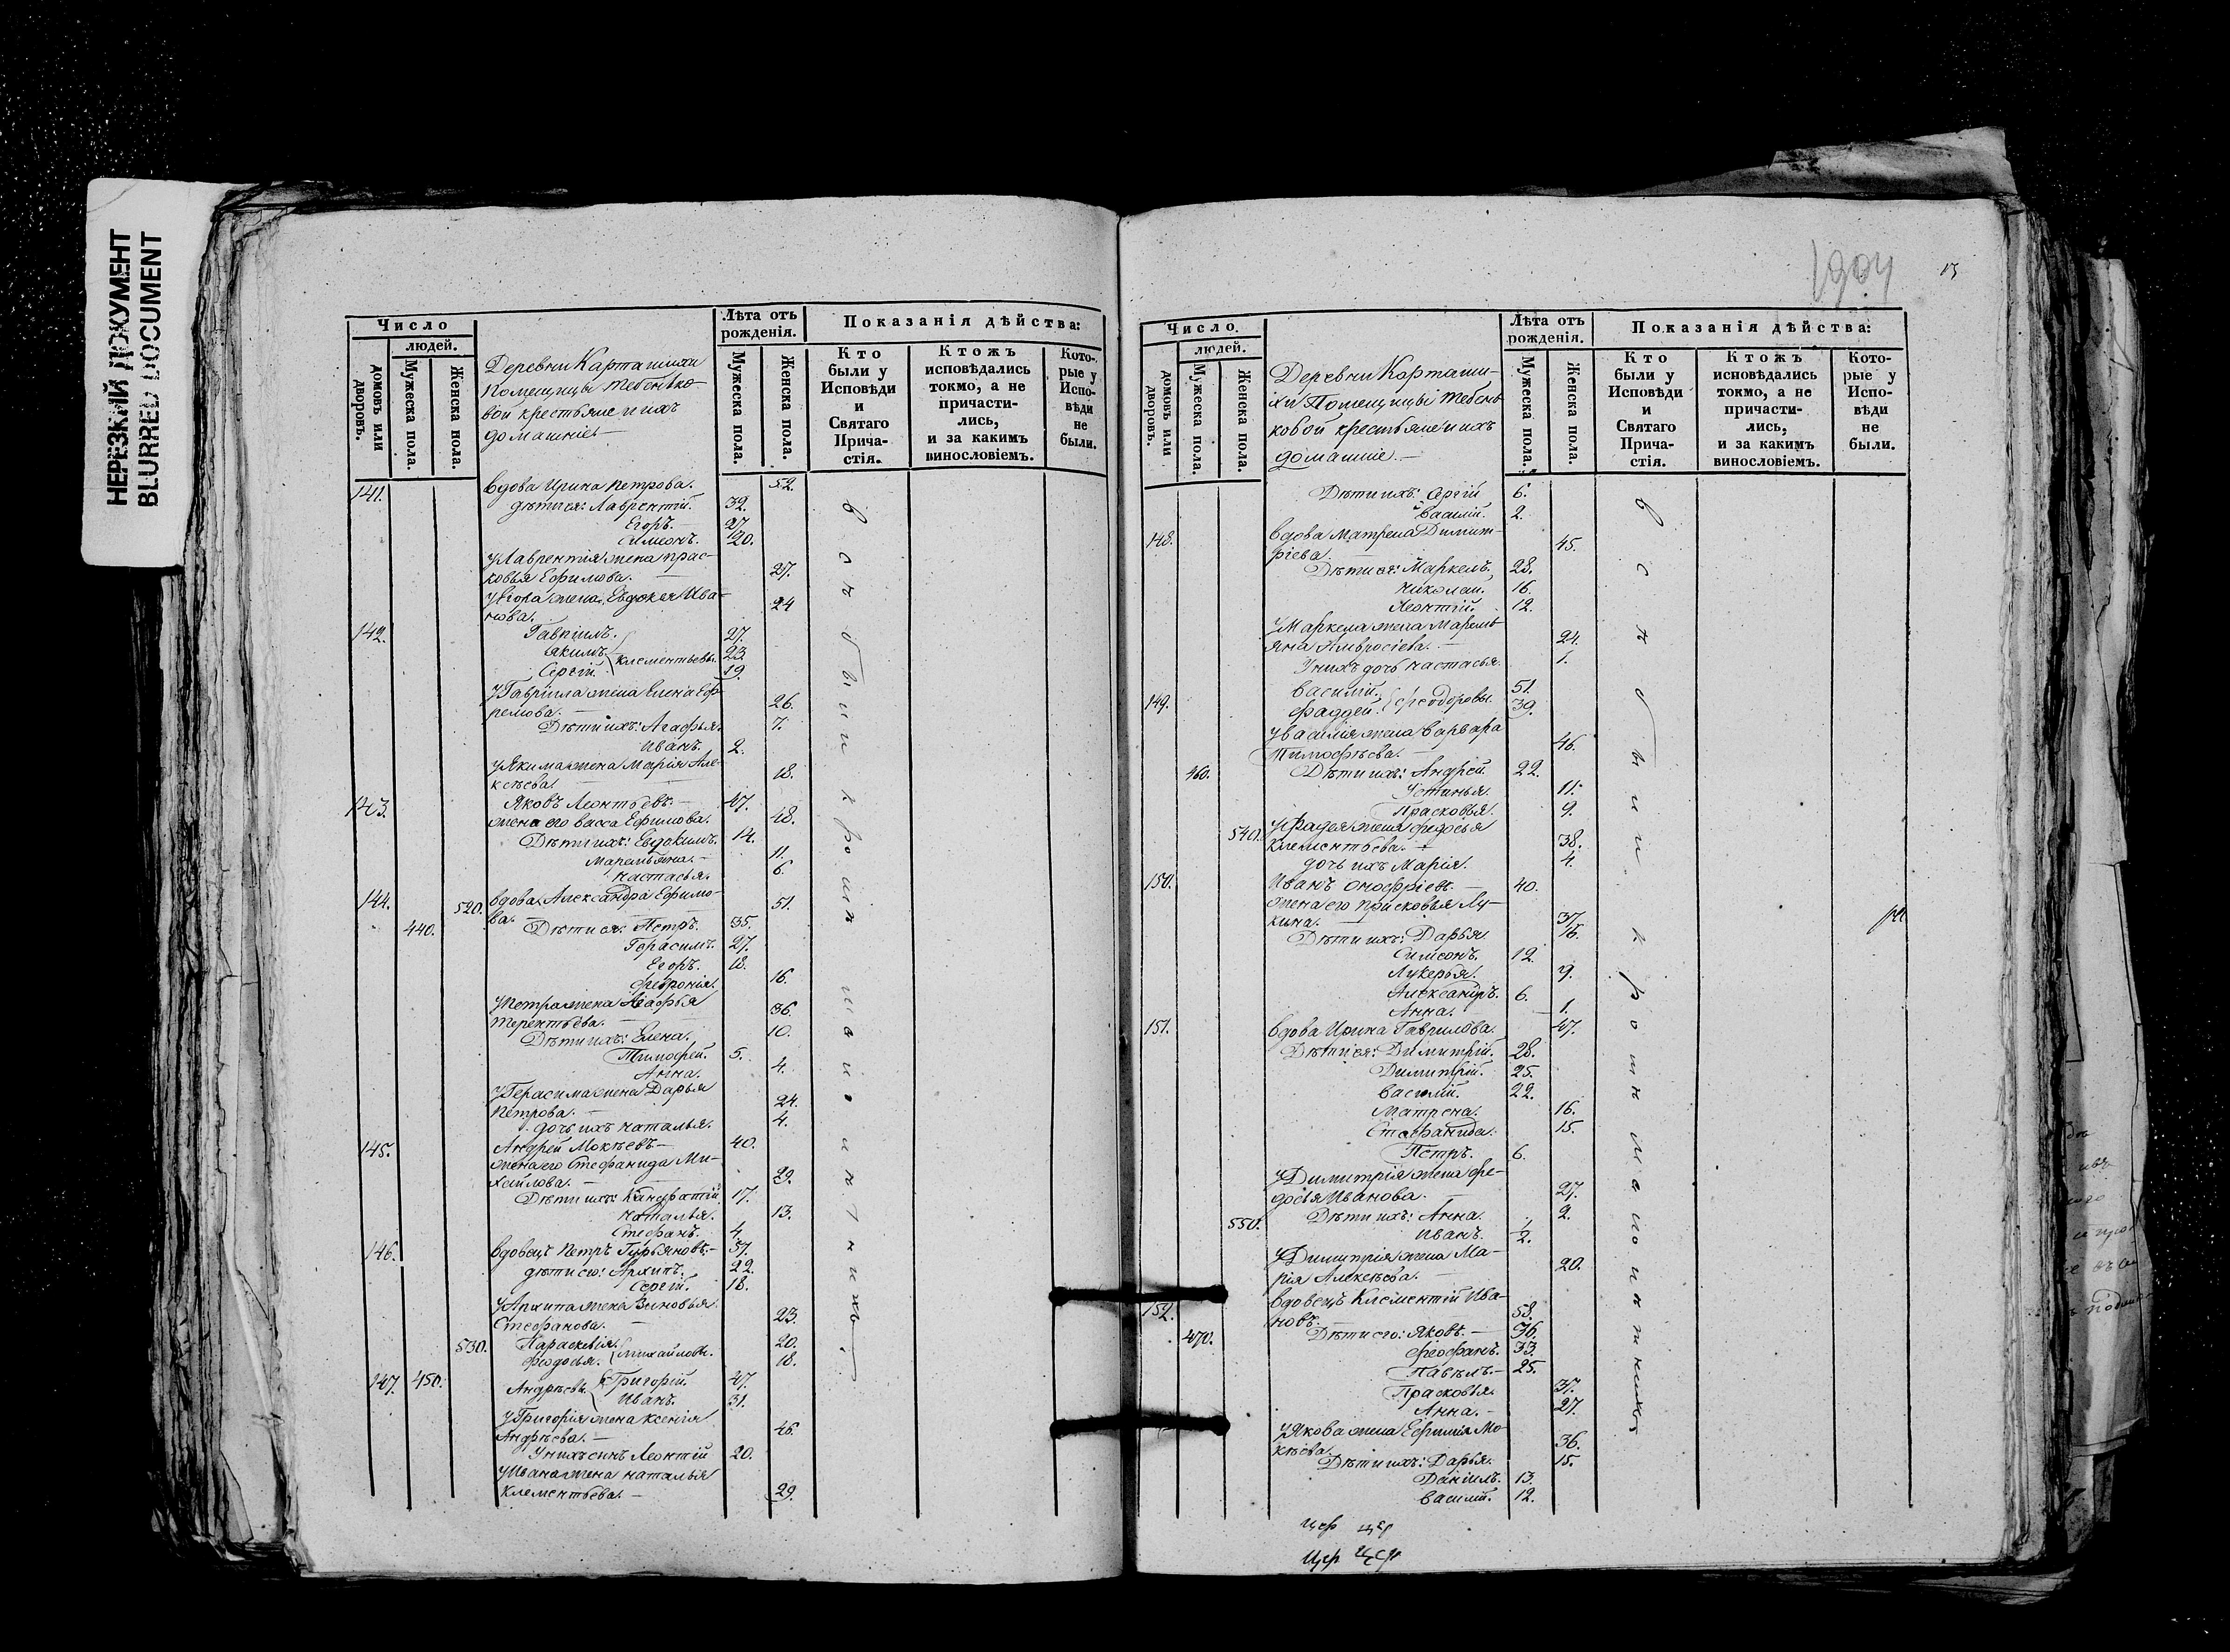 НЕРЕЗКИЙ ДОКУМЕНТ
BLURRED DOCUMENT
Число
людей.
домовъ или дворовъ.
Мужеска пола.
Женска пола.
Деревни Карташихи
Помещицы Тебенько-
вой крестьяне и ихъ
домашніе
Лѣта отъ
рожденія.
Мужеска пола.
Женска пола.
Показанія дѣйства:
Кто
были у
Исповѣди
и
Святаго
Прича-
стія.
Ктожъ
исповѣдались
токмо, а не
причасти-
лись,
и за какимъ
винословіемъ.
Кото-
рые у
Испо-
вѣди
не
были.
141. Вдова Ирина Петрова. 52.
дѣти ея: Лаврентій. 32.
Егоръ. 27.
Симеонъ. 20.
У Лаврентія жена Прас-
ковья Ефимова. 27.
У Егора жена Евдокея Ива-
нова. 24
142. Гавріилъ. 27.
Якимъ. Клементьевы. 23.
Сергій. 19.
У Гавріила жена Елена Еф-
ремова. 26.
Дѣти ихъ: Агафья. 7.
Иванъ. 2.
У Якима жена Марія Але-
ксѣева 18.
143. Яковъ Леонтьевъ. 47.
жена его Васса Ефимова. 48.
Дѣти ихъ: Евдокимъ. 14.
Маремьяна. 11.
Настасья. 6.
144. 520. Вдова Александра Ефимо-
ва. 51.
440. Дѣти ея: Петръ. 35.
Герасимъ. 27.
Егоръ. 18.
Февронія. 16.
У Петра жена Агафья
Терентьева. 36.
Дѣти ихъ: Елена. 10.
Тимофей. 5.
Анна. 4.
У Герасима жена Дарья
Петрова. 24.
дочь ихъ Наталья. 4.
145. Андрей Мокѣевъ 40.
жена его Стефанида Ми-
хайлова. 29.
Дѣти ихъ: Кандратій 17.
Наталья. 13.
Стефанъ. 4.
146. Вдовецъ Петръ Гурьяновъ. 57.
дѣти его: Архипъ. 22.
Сергій. 18.
У Архипа жена Зиновья
Стефанова. 23.
530. Параскевія. 20.
Феодосья. Михайловы. 18.
147. 450. Андрѣевы Григорій. 47.
Иванъ. 31.
У Григорія жена Ксенія
Андрѣева. 46.
У нихъ сынъ Леонтій 20.
У Ивана жена Наталья
Клементьева. 29.
1904
13
Число.
людей.
домовъ или дворовъ.
Мужеска пола.
Женска пола.
Деревни Карташи-
хи Помещицы Тебень
ковой крестьяне и ихъ
домашніе.
Лѣта отъ
рожденія.
Мужеска пола.
Женска пола.
Показанія дѣйства:
Кто
были у
Исповѣди
и
Святаго
Прича-
стія.
Ктожъ
исповѣдались
токмо, а не
причасти-
лись,
и за какимъ
винословіемъ.
Кото-
рые у
Испо-
вѣди
не
были.
Дѣти ихъ: Сергій 6.
Василій. 2.
148. Вдова Матрена Димит-
ріева. 45.
Дѣти ея: Маркелъ. 28.
Николай. 16.
Леонтій. 12.
У Маркела жена Маремь
яна Амвросіева. 24.
У нихъ дочь Настасья. 1.
149. Василій. 51.
Фаддей. Феодоровы. 39.
У Василія жена Варвара
Тимофѣева. 46.
460. Дѣти ихъ: Андрей. 22.
Устинья. 11.
Прасковья. 9.
540. У Фадея жена Федосья
Клементьева. 38.
дочь ихъ Марія. 4.
150. Иванъ Онофріевъ. 40.
жена его Прасковья Лу-
кина. 37.
Дѣти ихъ: Дарья. 16.
Симеонъ. 12.
Лукерья. 9.
Александръ. 6.
Анна. 1.
151. Вдова Ирина Гаврилова. 47.
Дѣти ея: Димитрій. 28.
Димитрій. 25.
Василій. 22.
Матрена. 16.
Стефанида. 15.
Петръ. 6.
У Димитрія жена Фе-
досья Иванова. 27.
550. Дѣти ихъ: Анна. 2.
Иванъ. 1/2.
У Димитрія жена Ма-
рія Алексѣева. 20.
152. Вдовецъ Клементій Ива-
новъ. 58.
470. Дѣти его: Яковъ. 36.
Феофанъ. 33.
Павелъ. 25.
Прасковья. 37.
Анна. 27.
У Якова жена Ефимія Мо-
кѣева. 36.
Дѣти ихъ: Дарья. 15.
Даніилъ. 13.
Василій. 12.